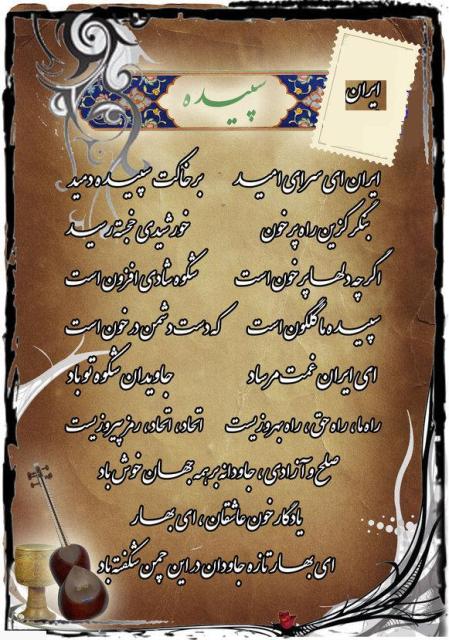 ایران
سپیده
ایران ای سرای امید بر خاکت سپیده دمید
بنگر کزین ره پر خون خورشیدی خجسته رسید
اگر چه دلها پر خون است شکوه شادی افزون است
سپیده ما گلگون است که دست دشمن در خون است
ای ایران غمت مرساد جاویدان شکوه تو باد
راه ما، راه حق، راه بهروزیست اتحاد، اتحاد، رمز پیروزیست
صلح و آزادی، جاودانه بر همه جهان خوش باد
یادگار خون عاشقان، ای بهار
ای بهار تازه جاودان در این چمن شکفته باد